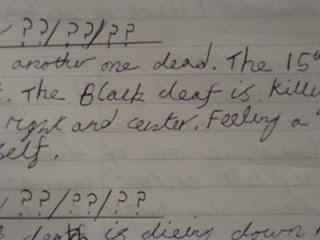 y ??/??/??
another one dead. The 15th
. The Black deaf is kille
right and center. Feeling a
self.
y ??/??/??
death is dieing down